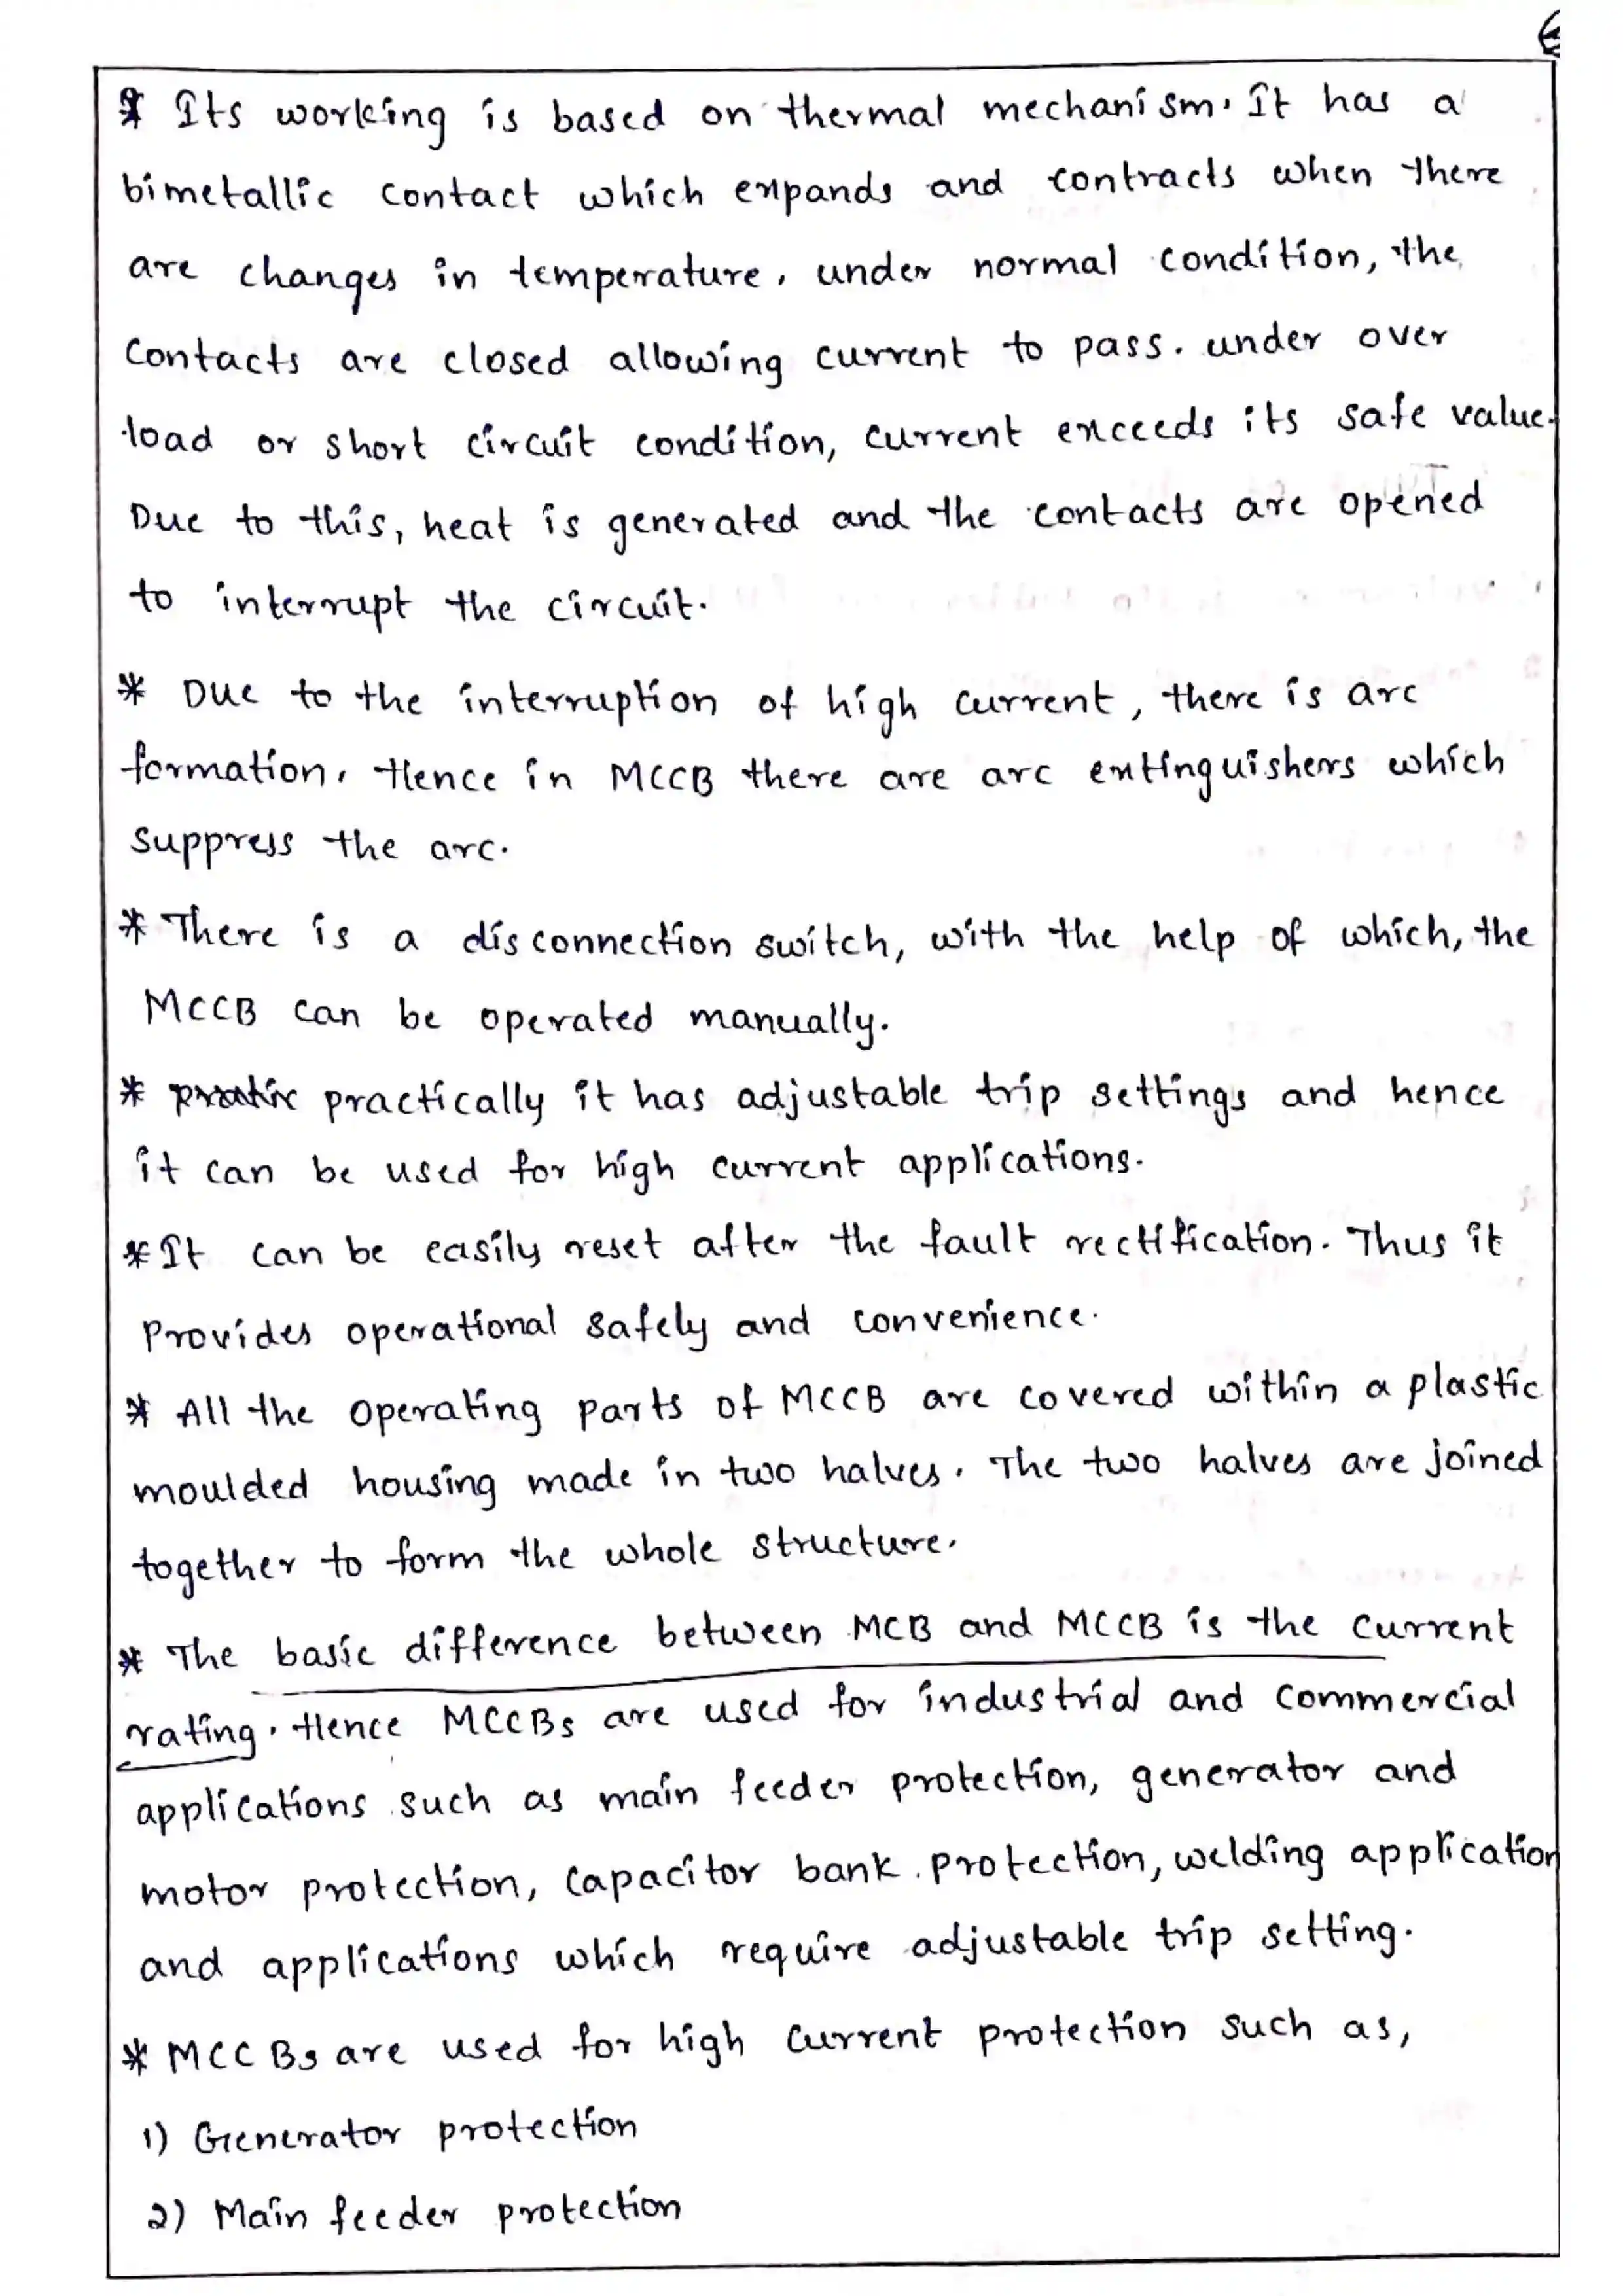 * Its working is based on thermal mechanism. It has a
bimetallic contact which expands and contracts when there
are changes in temperature. under normal condition, the
contacts are closed allowing current to pass. under over
load or short circuit condition, current exceeds its safe value.
Due to this, heat is generated and the contacts are opened
to interrupt the circuit.
* Due to the interruption of high current, there is arc
formation. Hence in MCCB there are arc extinguishers which
suppress the arc.
* There is a disconnection switch, with the help of which, the
MCCB can be operated manually.
* practically it has adjustable trip settings and hence
it can be used for high current applications.
* It can be easily reset after the fault rectification. Thus it
Provides operational safely and convenience.
* All the operating parts of MCCB are covered within a plastic
moulded housing made in two halves. The two halves are joined
together to form the whole structure.
* The basic difference between MCB and MCCB is the current
rating. Hence MCCBs are used for industrial and commercial
applications such as main feeder protection, generator and
motor protection, capacitor bank protection, welding application
and applications which require adjustable trip setting.
* MCCBs are used for high current protection such as,
1) Generator protection
2) Main feeder protection